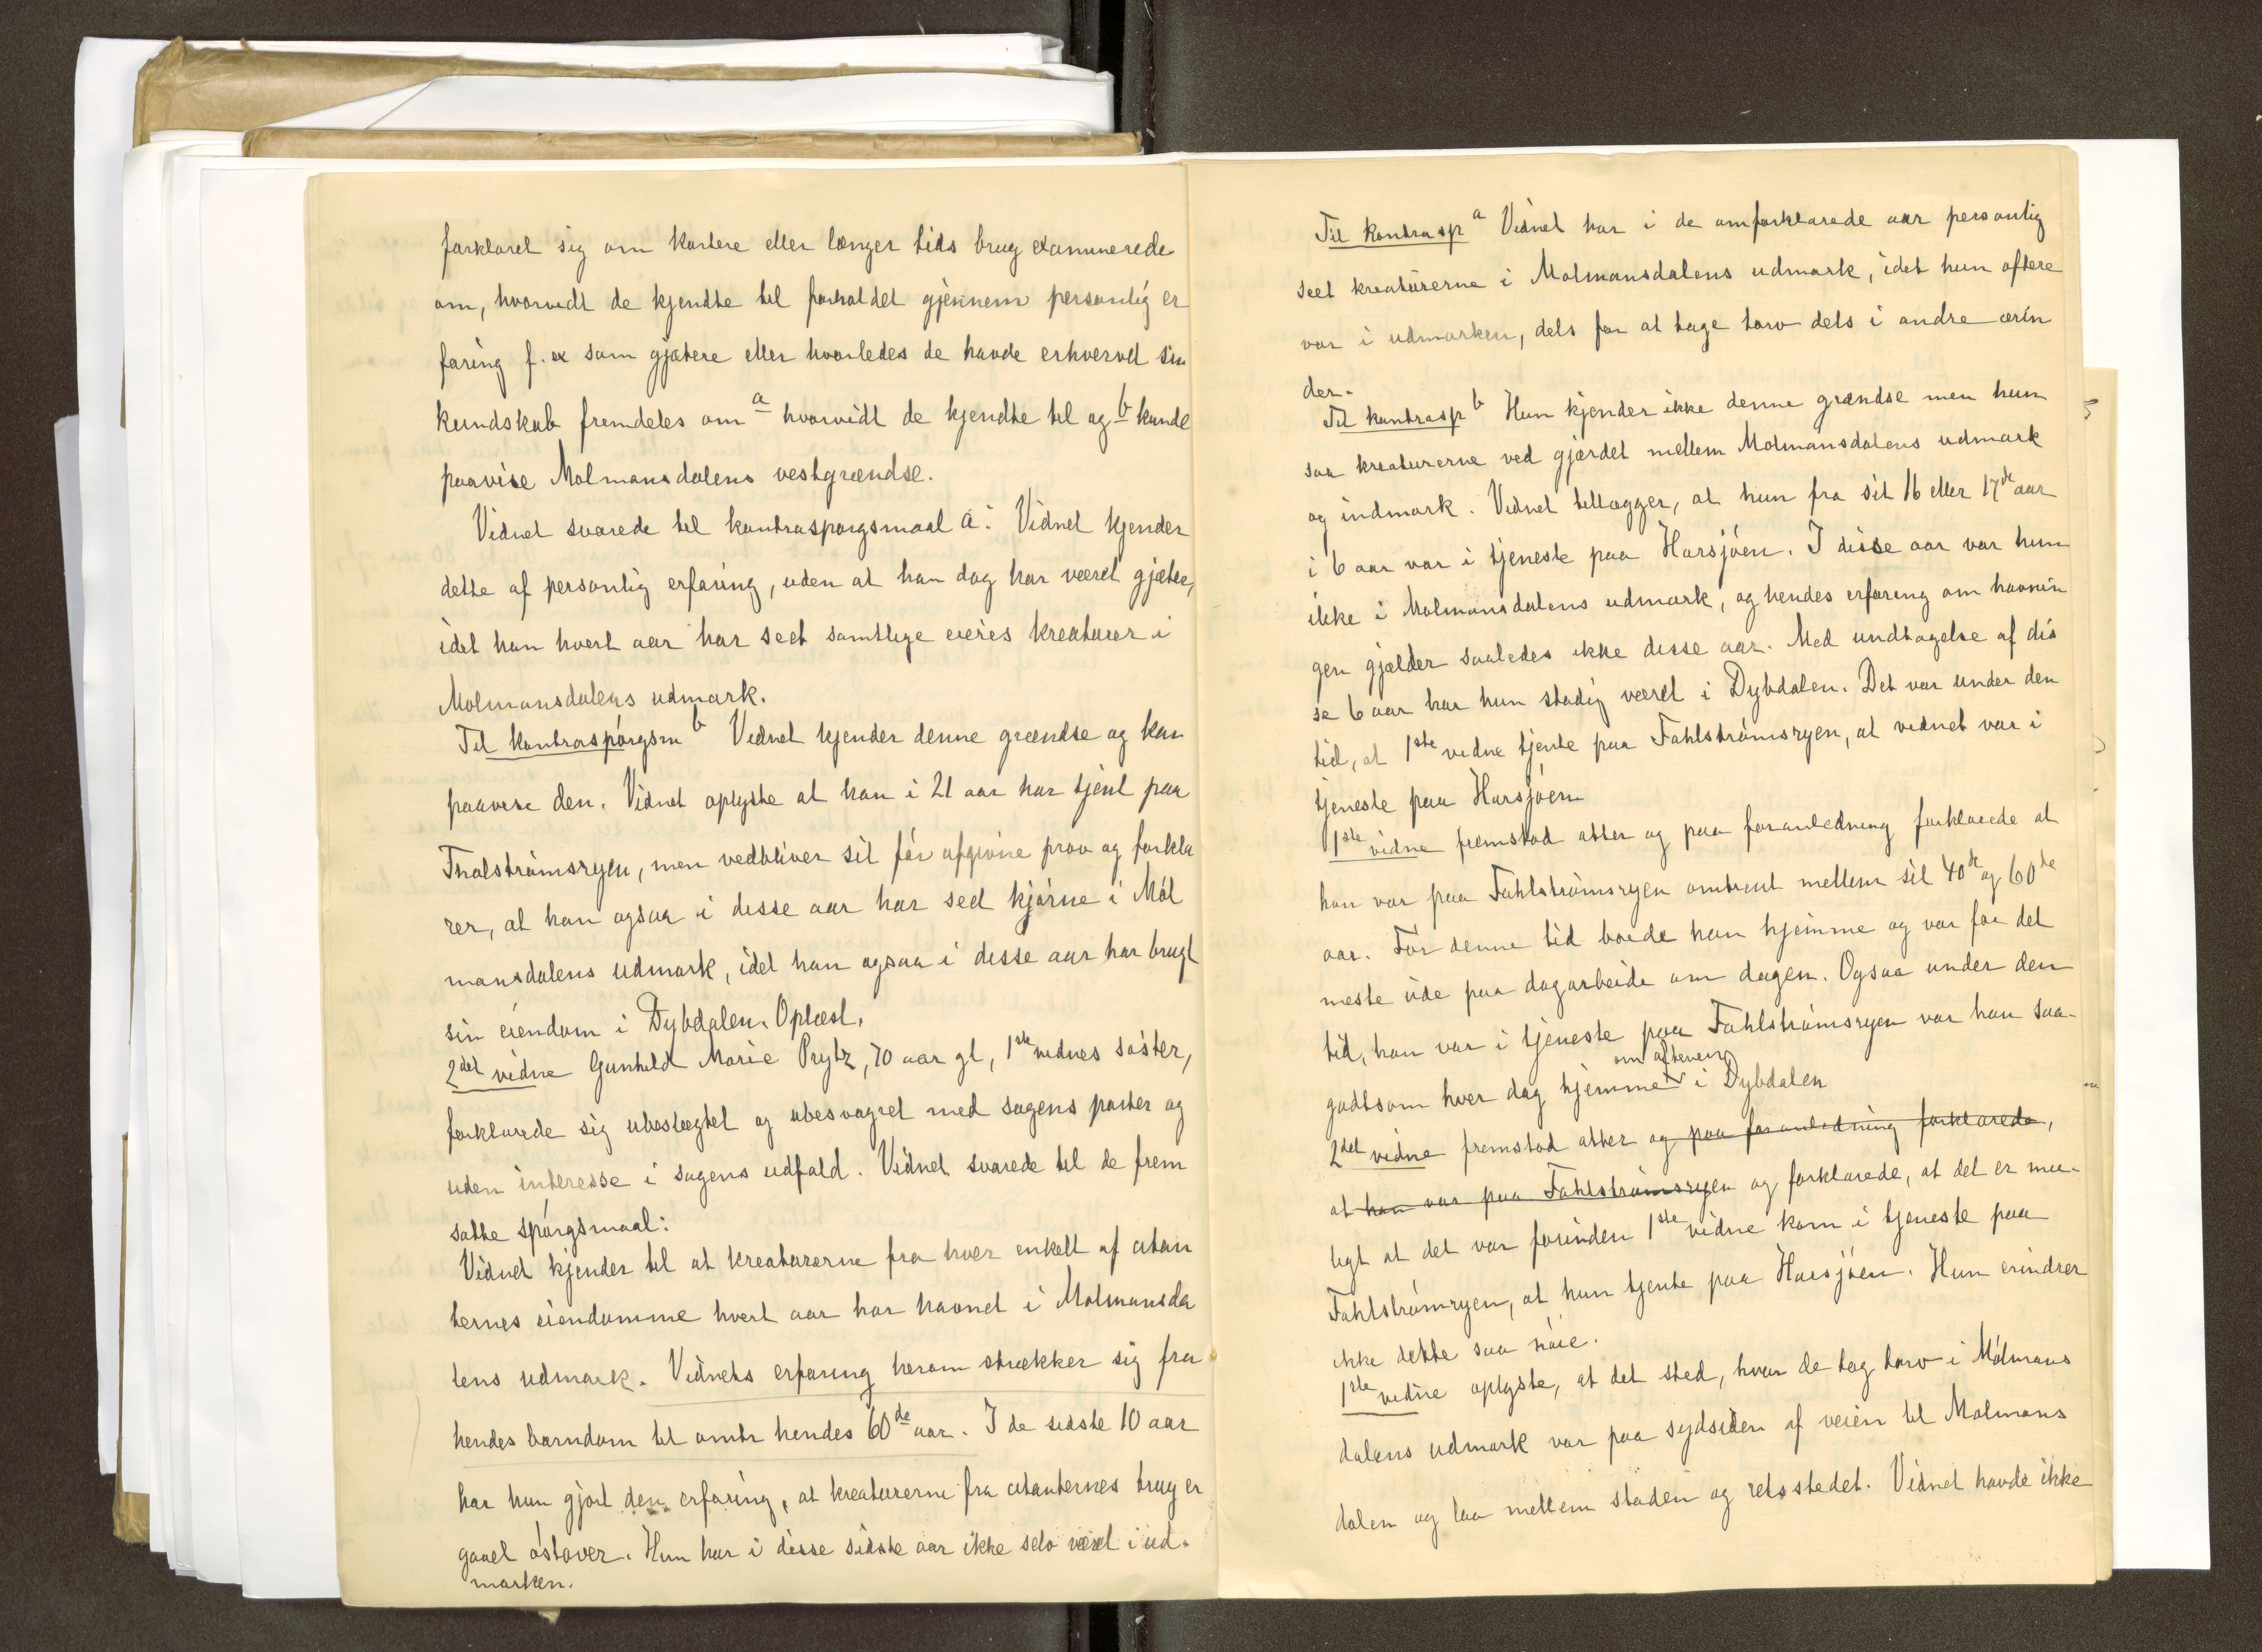 forklaret sig om kortere eller længer tids brug examinerede
om, hvorvidt de kjendte til forholdet gjennem personlig er
faring f. ex som gjætere eller hvorledes de havde erhvervet sin
kundskab fremdeles om a hvorvidt de kjendte til og b kunde
paavise Molmansdalens vestgrændse.
Vidnet svarede til kontraspørgsmaal a: Vidnet kjender
dette af personlig erfaring, uden at han dog har været gjæter,
idet han hvert aar har seet samtlige eieres kreaturer i
Molmansdalens udmark.
Til kontraspørgsm b Vidnet kjender denne grændse og kan
paavise den. Vidnet oplyste at han i 21 aar har tjent paa
Fhalstrømsryen, men vedbliver sit før afgivne prov og forkla
rer, at han ogsaa i disse aar har seet kjørne i Mól
mansdalens udmark, idet han ogsaa i disse aar har brugt
sin eiendom i Dybdalen. Oplæst.
2det vidne Gunhild Marie Prytz, 70 aar gl, 1ste vidnes søster,
forklarede sig ubeslægtet og ubesvogret med sagens parter og
uden interesse i sagens udfald. Vidnet svarede til de frem
satte spørgsmaal:
Vidnet kjender til at kreaturerne fra hver enkelt af citan
ternes eiendomme hvert aar har havnet i Molmansda
lens udmark. Vidnets erfaring herom strækker sig fra
hendes barndom til omtr hendes 60de aar. I de sidste 10 aar
har hun gjort den erfaring, at kreaturerne fra citanternes brug er
gaaet østover. Hun har i disse sidste aar ikke selv været i ud-
marken.
Til kontrasp a Vidnet har i de omforklarede aar personlig
seet kreaturerne i Molmansdalens udmark, idet hun oftere
var i udmarken, dels for at tage torv dels i andre ærin
der.
Til kontrasp b Hun kjender ikke denne grændse men hun
saa kreaturerne ved gjærdet mellem Molmansdalens udmark
og indmark. Vidnet tillægger, at hun fra sit 16 eller 17de aar
i 6 aar var i tjeneste paa Harsjøen. I disse aar var hun
ikke i Molmansdalens udmark, og hendes erfaring om havnin
gen gjælder saaledes ikke disse aar. Med undtagelse af dis
se 6 aar har hun stadig været i Dybdalen. Det var under den
tid, at 1ste vidne tjente paa Fahlstrømsryen, at vidnet var i
tjeneste paa Harsjøen
1ste vidne fremstod atter og paa foranledning forklarede at
han var paa Fahlstrømsryen omtrent mellem sit 40de og 60de
aar. Før denne tid boede han hjemme og var for det
meste ude paa dagarbeide om dagen. Ogsaa under den
tid, han var i tjeneste paa Fahlstrømsryen var han saa-
godtsom hver dag hjemme om aftenen i Dybdalen
2det vidne fremstod atter og paa foranledning forklarede,
at han var paa Fahlstrømsryen og forklarede, at det er mu-
ligt at det var forinden 1ste vidne kom i tjeneste paa
Fahlstrømryen, at hun tjente paa Harsjøen. Hun erindrer
ikke dette saa nøie.
1ste vidne oplyste, at det sted, hvor de tog torv i Mólmans
dalens udmark var paa sydsiden af veien til Molmans
dalen og laa mellem staden og retsstedet. Vidnet havde ikke